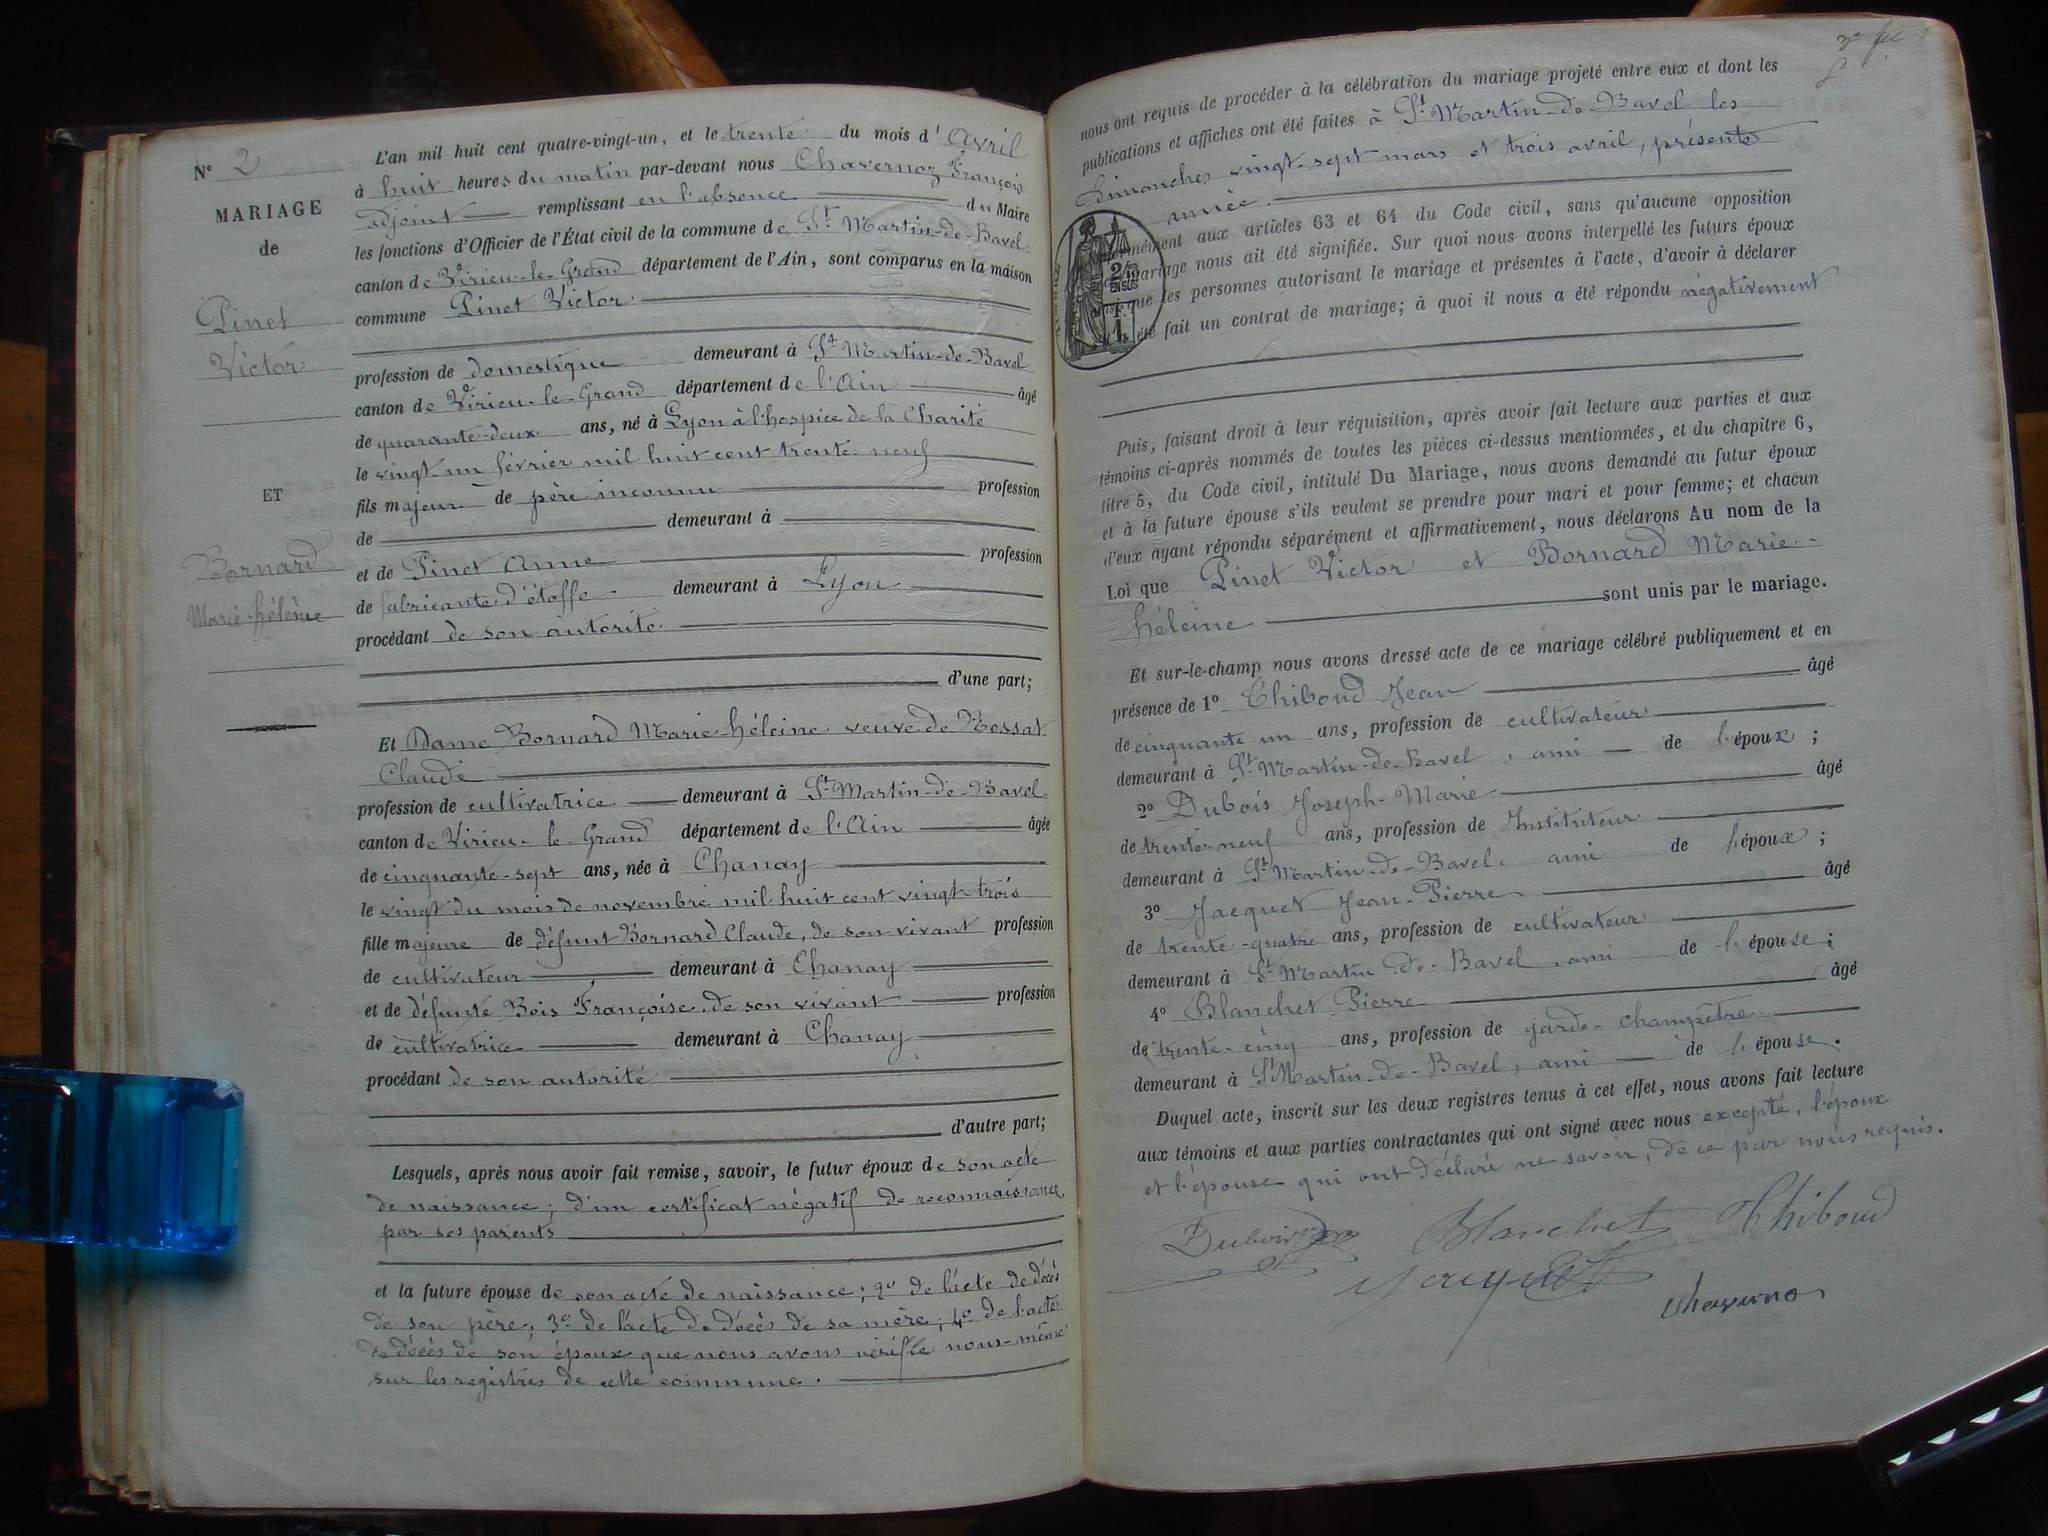 Nº 2
MARIAGE
de
Pinet
Victor
ET
Bornard
Marie-hélène
L'an mil huit cent quatre-vingt-un, et le trente du mois d'Avril
à huit heures du matin par-devant nous Chavernoz François
adjoint remplissant en l'absence du Maire
les fonctions d'Officier de l'État civil de la commune de St Martin-de-Bavel
canton de Virieu-le-Grand département de l'Ain, sont comparus en la maison
commune Pinet Victor
profession de domestique demeurant à St Martin-de-Bavel
canton de Virieu-le-Grand département de l'Ain âgé
de quarante-deux ans, né à Lyon à l'hospice de la Charité
le vingt-un février mil huit cent trente-neuf
fils majeur de père inconnu profession
de demeurant à
et de Pinet Anne profession
de fabricante d'étoffe demeurant à Lyon
procédant de son autorité
d'une part;
Et Dame Bornard Marie-héleine veuve de Rossat
Claude
profession de cultivatrice demeurant à St Martin-de-Bavel
canton de Virieu-le-Grand département de l'Ain âgée
de cinquante-sept ans, née à Chanay
le vingt du mois de novembre mil huit cent vingt-trois
fille majeure de défunt Bornard Claude, de son vivant profession
de cultivateur demeurant à Chanay
et de défunte Bois Françoise, de son vivant profession
de cultivatrice demeurant à Chanay
procédant de son autorité
d'autre part;
Lesquels, après nous avoir fait remise, savoir, le futur époux de son acte
de naissance; d'un certificat négatif de reconnaissance
par ses parents
et la future épouse de son acte de naissance; 2º de l'acte de décès
de son père; 3º de l'acte de décès de sa mère; 4º de l'acte
de décès de son époux que nous avons vérifié nous-même
sur les registres de cette commune.
nous ont requis de procéder à la célébration du mariage projeté entre eux et dont les
publications et affiches ont été faites à St Martin-de-Bavel les
Dimanches vingt-sept mars et trois avril, présente
année.
aux articles 63 et 64 du Code civil, sans qu'aucune opposition
mariage nous ait été signifiée. Sur quoi nous avons interpellé les futurs époux
que les personnes autorisant le mariage et présentes à l'acte, d'avoir à déclarer
été fait un contrat de mariage; à quoi il nous a été répondu négativement
Puis, faisant droit à leur réquisition, après avoir fait lecture aux parties et aux
témoins ci-après nommés de toutes les pièces ci-dessus mentionnées, et du chapitre 6,
titre 5, du Code civil, intitulé Du Mariage, nous avons demandé au futur époux
et à la future épouse s'ils veulent se prendre pour mari et pour femme; et chacun
d'eux ayant répondu séparément et affirmativement, nous déclarons Au nom de la
Loi que Pinet Victor et Bornard Marie-
héleine sont unis par le mariage.
Et sur-le-champ nous avons dressé acte de ce mariage célébré publiquement et en
présence de 1º Thiboud Jean âgé
de cinquante un ans, profession de cultivateur
demeurant à St Martin-de-Bavel, ami de l'époux;
2º Dubois Joseph-Marie âgé
de trente-neuf ans, profession de Instituteur
demeurant à St Martin-de-Bavel, ami de l'époux;
3º Jacquet Jean-Pierre âgé
de trente-quatre ans, profession de cultivateur
demeurant à St Martin-de-Bavel, ami de l'épouse;
4º Blanchet Pierre âgé
de trente-cinq ans, profession de garde-champêtre
demeurant à St Martin-de-Bavel, ami de l'épouse.
Duquel acte, inscrit sur les deux registres tenus à cet effet, nous avons fait lecture
aux témoins et aux parties contractantes qui ont signé avec nous excepté, l'époux
et l'épouse qui ont déclaré ne savoir, de ce par nous requis.
Dubois Blanchet Thiboud
Jacquet
Chavernoz